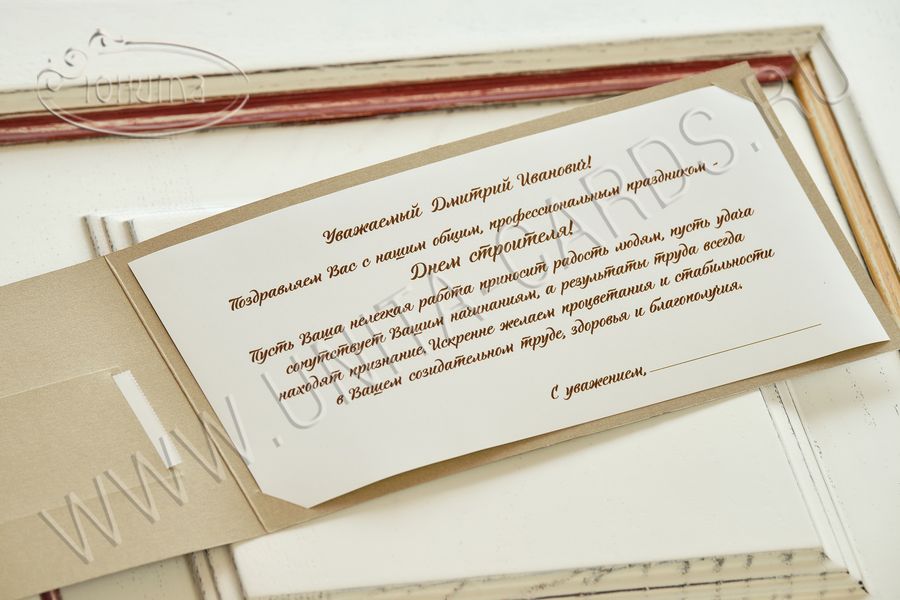 Юнита
Уважаемый Дмитрий Иванович!
Поздравляем Вас с нашим общим, профессиональным праздником -
Днем строителя!
Пусть Ваша нелегкая работа приносит радость людям, пусть удача
сопутствует Вашим начинаниям, а результаты труда всегда
находят признание. Искренне желаем процветания и стабильности
в Вашем созидательном труде, здоровья и благополучия.
С уважением,
WWW.UNITA-CARDS.RU